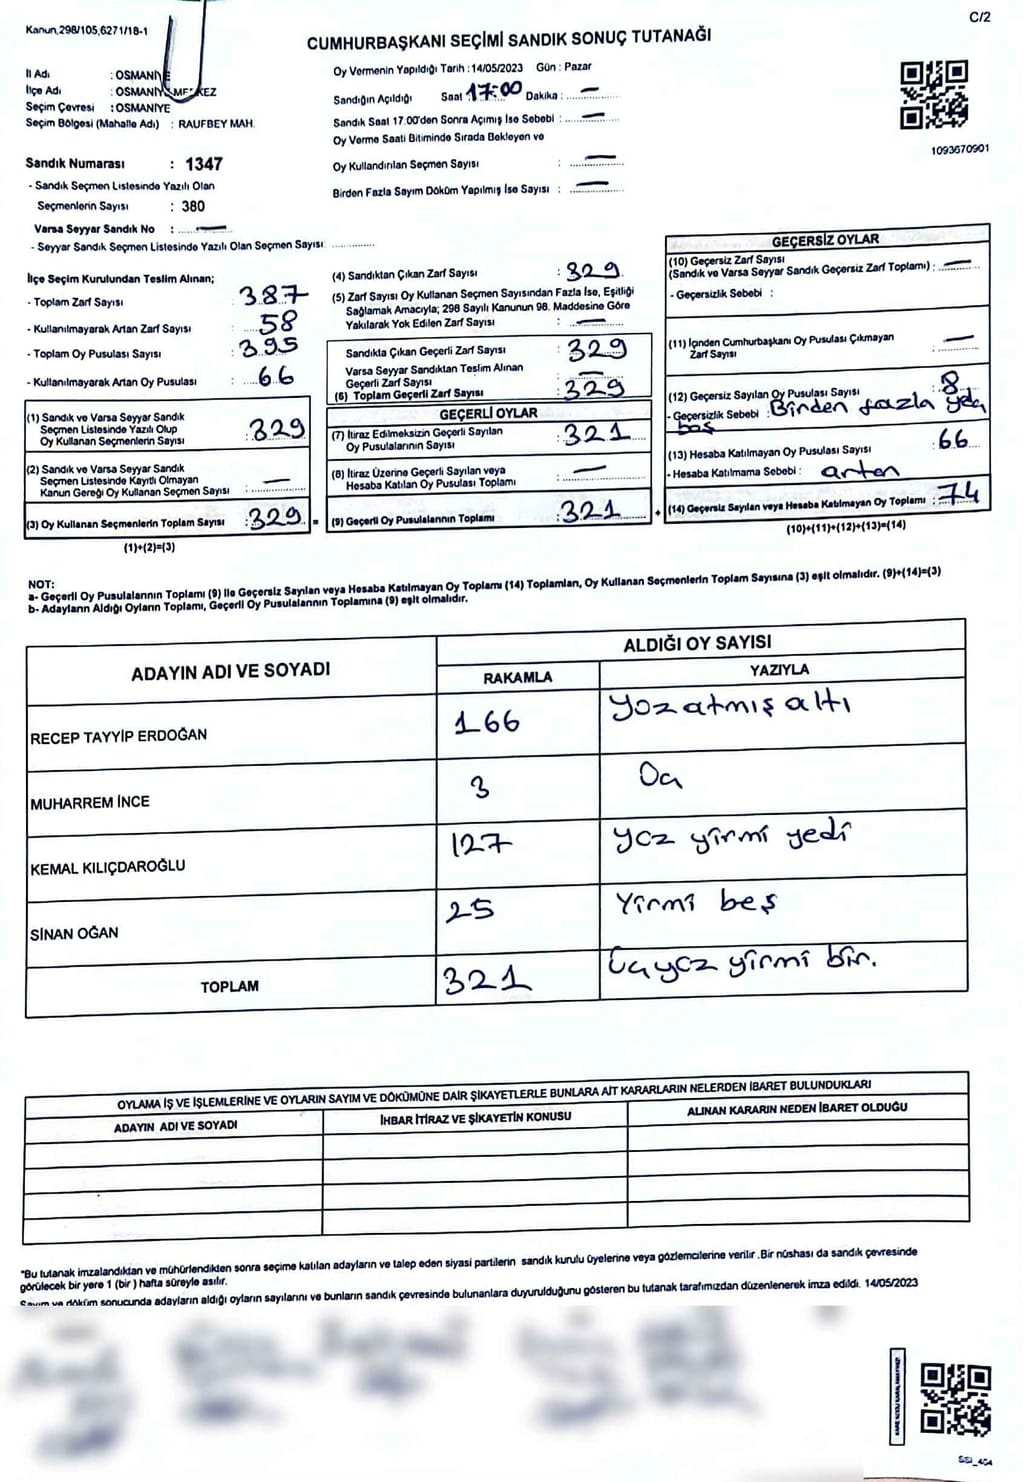 C/2
Kanun,298/105,6271/18-1
CUMHURBAŞKANI SEÇİMİ SANDIK SONUÇ TUTANAĞI
İl Adı : OSMANİYE
İlçe Adı : OSMANİYE MERKEZ
Seçim Çevresi : OSMANİYE
Seçim Bölgesi (Mahalle Adı) : RAUFBEY MAH.
Sandık Numarası : 1347
- Sandık Seçmen Listesinde Yazılı Olan
Seçmenlerin Sayısı : 380
Varsa Seyyar Sandık No : —
- Seyyar Sandık Seçmen Listesinde Yazılı Olan Seçmen Sayısı: ..............
Oy Vermenin Yapıldığı Tarih : 14/05/2023 Gün : Pazar
Sandığın Açıldığı Saat 17:00 Dakika : —
Sandık Saat 17.00'den Sonra Açımış İse Sebebi : —
Oy Verme Saati Bitiminde Sırada Bekleyen ve
Oy Kullandırılan Seçmen Sayısı : —
Birden Fazla Sayım Döküm Yapılmış İse Sayısı : —
1093670901
İlçe Seçim Kurulundan Teslim Alınan;
- Toplam Zarf Sayısı : 387
- Kullanılmayarak Artan Zarf Sayısı : 58
- Toplam Oy Pusulası Sayısı : 395
- Kullanılmayarak Artan Oy Pusulası : 66
(1) Sandık ve Varsa Seyyar Sandık
Seçmen Listesinde Yazılı Olup
Oy Kullanan Seçmenlerin Sayısı : 329
(2) Sandık ve Varsa Seyyar Sandık
Seçmen Listesinde Kayıtlı Olmayan
Kanun Gereği Oy Kullanan Seçmen Sayısı : —
(3) Oy Kullanan Seçmenlerin Toplam Sayısı : 329 =
(1)+(2)=(3)
(4) Sandıktan Çıkan Zarf Sayısı : 329
(5) Zarf Sayısı Oy Kullanan Seçmen Sayısından Fazla İse, Eşitliği
Sağlamak Amacıyla; 298 Sayılı Kanunun 98. Maddesine Göre
Yakılarak Yok Edilen Zarf Sayısı : —
Sandıkta Çıkan Geçerli Zarf Sayısı : 329
Varsa Seyyar Sandıktan Teslim Alınan
Geçerli Zarf Sayısı : —
(6) Toplam Geçerli Zarf Sayısı : 329
GEÇERLİ OYLAR
(7) İtiraz Edilmeksizin Geçerli Sayılan
Oy Pusulalarının Sayısı : 321
(8) İtiraz Üzerine Geçerli Sayılan veya
Hesaba Katılan Oy Pusulası Toplamı : —
(9) Geçerli Oy Pusulalarının Toplamı : 321 +
GEÇERSİZ OYLAR
(10) Geçersiz Zarf Sayısı
(Sandık ve Varsa Seyyar Sandık Geçersiz Zarf Toplamı) : —
- Geçersizlik Sebebi :
(11) İçinden Cumhurbaşkanı Oy Pusulası Çıkmayan
Zarf Sayısı : —
(12) Geçersiz Sayılan Oy Pusulası Sayısı : 8
- Geçersizlik Sebebi : Binden fazla yda
baş
(13) Hesaba Katılmayan Oy Pusulası Sayısı : 66
- Hesaba Katılmama Sebebi : artan
(14) Geçersiz Sayılan veya Hesaba Katılmayan Oy Toplamı : 74
(10)+(11)+(12)+(13)=(14)
NOT:
a- Geçerli Oy Pusulalarının Toplamı (9) İle Geçersiz Sayılan veya Hesaba Katılmayan Oy Toplamı (14) Toplamları, Oy Kullanan Seçmenlerin Toplam Sayısına (3) eşit olmalıdır. (9)+(14)=(3)
b- Adayların Aldığı Oyların Toplamı, Geçerli Oy Pusulalarının Toplamına (9) eşit olmalıdır.
ADAYIN ADI VE SOYADI
ALDIĞI OY SAYISI
RAKAMLA YAZIYLA
RECEP TAYYİP ERDOĞAN 166 yüzatmış altı
MUHARREM İNCE 3 Üç
KEMAL KILIÇDAROĞLU 127 yüz yirmi yedi
SİNAN OĞAN 25 Yirmi beş
TOPLAM 321 Üçyüz yirmi bir.
OYLAMA İŞ VE İŞLEMLERİNE VE OYLARIN SAYIM VE DÖKÜMÜNE DAİR ŞİKAYETLERLE BUNLARA AİT KARARLARIN NELERDEN İBARET BULUNDUKLARI
ADAYIN ADI VE SOYADI İHBAR İTİRAZ VE ŞİKAYETİN KONUSU ALINAN KARARIN NEDEN İBARET OLDUĞU
*Bu tutanak imzalandıktan ve mühürlendikten sonra seçime katılan adayların ve talep eden siyasi partilerin sandık kurulu üyelerine veya gözlemcilerine verilir .Bir nüshası da sandık çevresinde
görülecek bir yere 1 (bir ) hafta süreyle asılır.
Sayım ve döküm sonucunda adayların aldığı oyların sayılarını ve bunların sandık çevresinde bulunanlara duyurulduğunu gösteren bu tutanak tarafımızdan düzenlenerek imza edildi. 14/05/2023